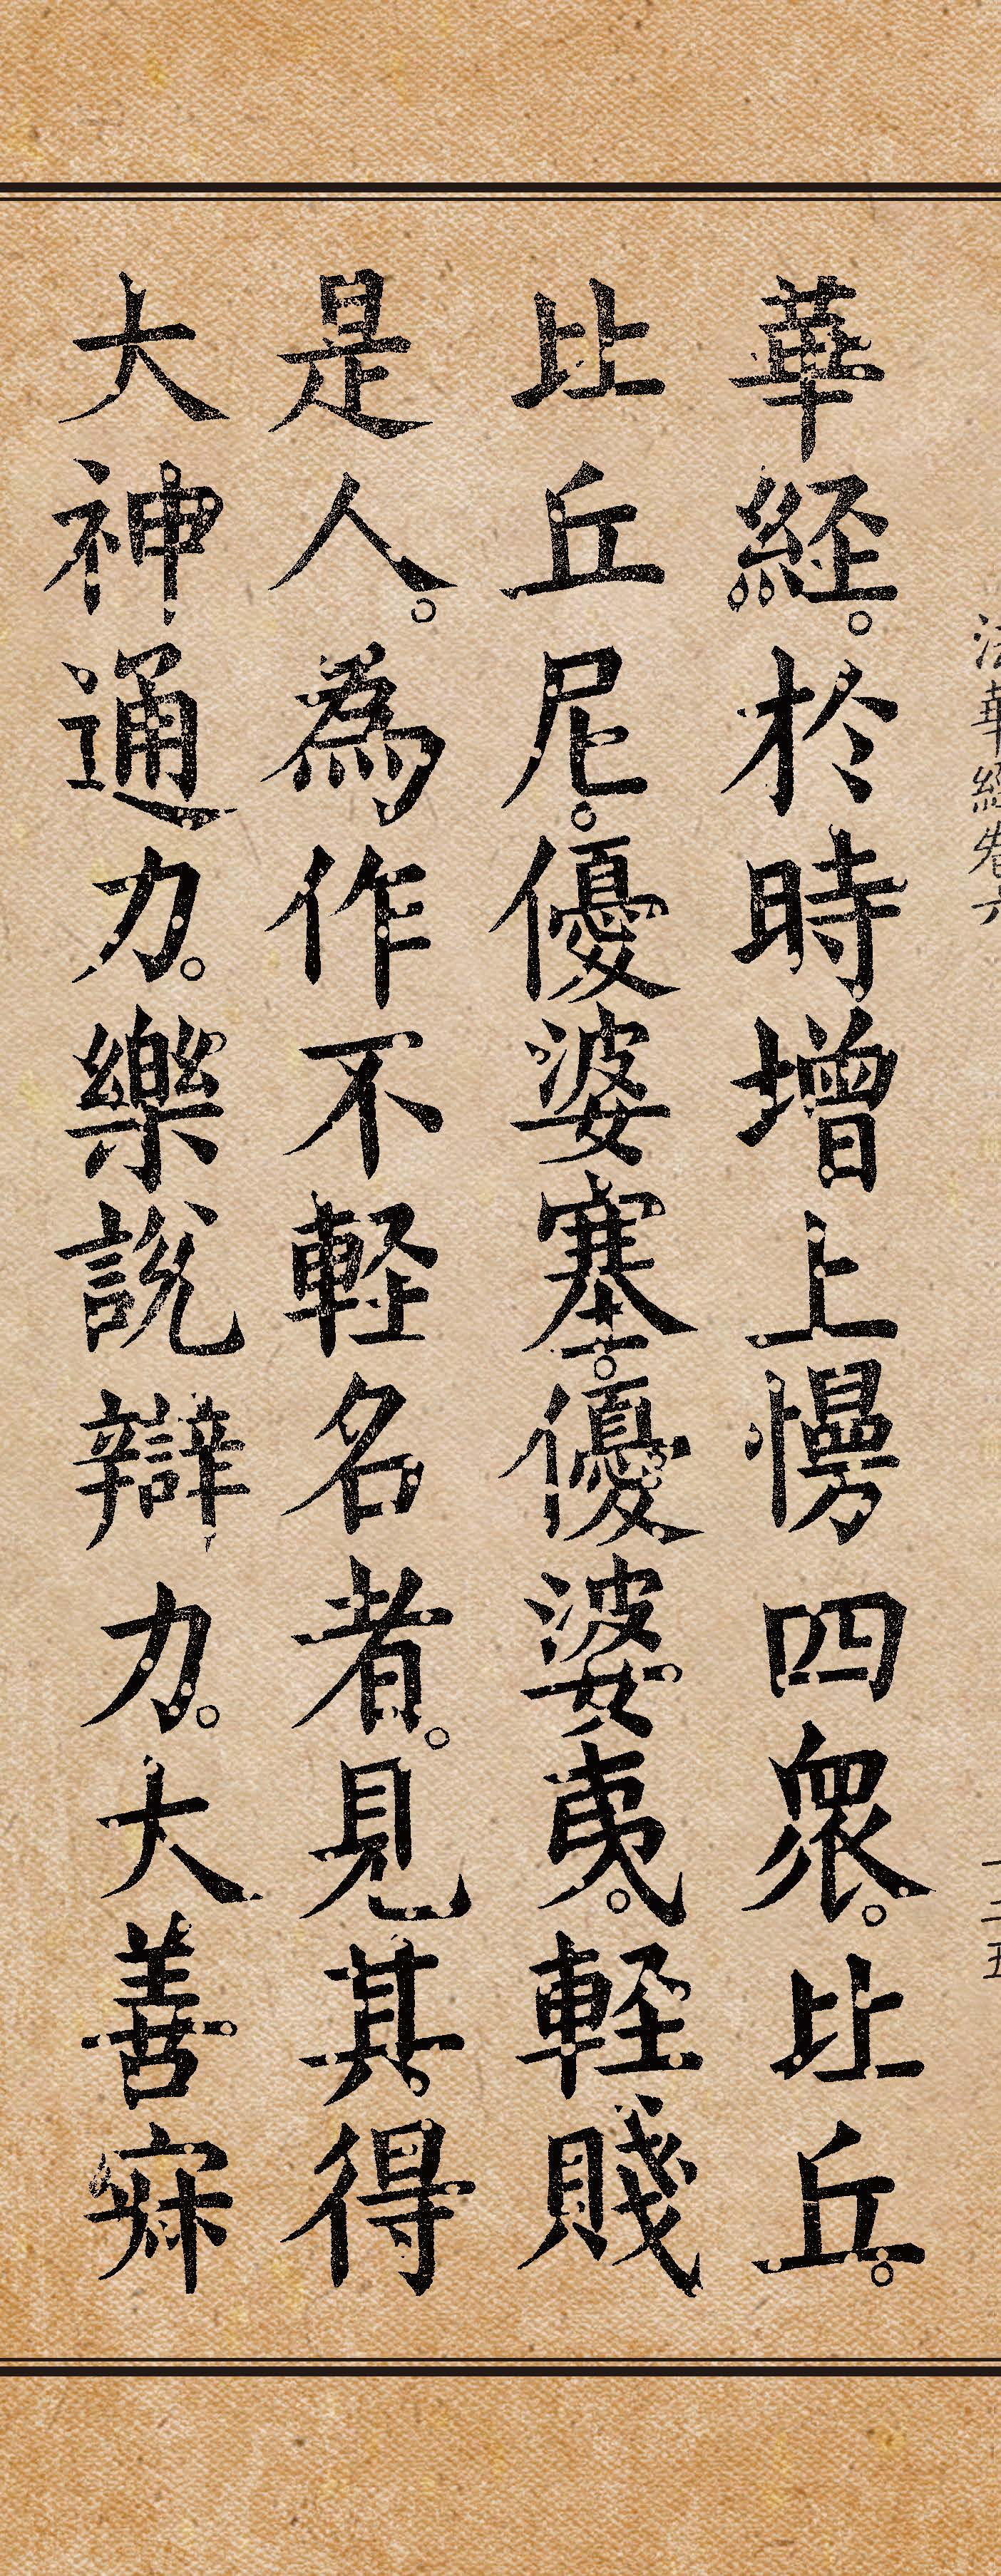 法華經卷六
華經。於時增上慢四眾。比丘。
比丘尼。優婆塞。優婆夷。輕賤
是人。為作不輕名者。見其得
大神通力。樂說辯力。大善寂